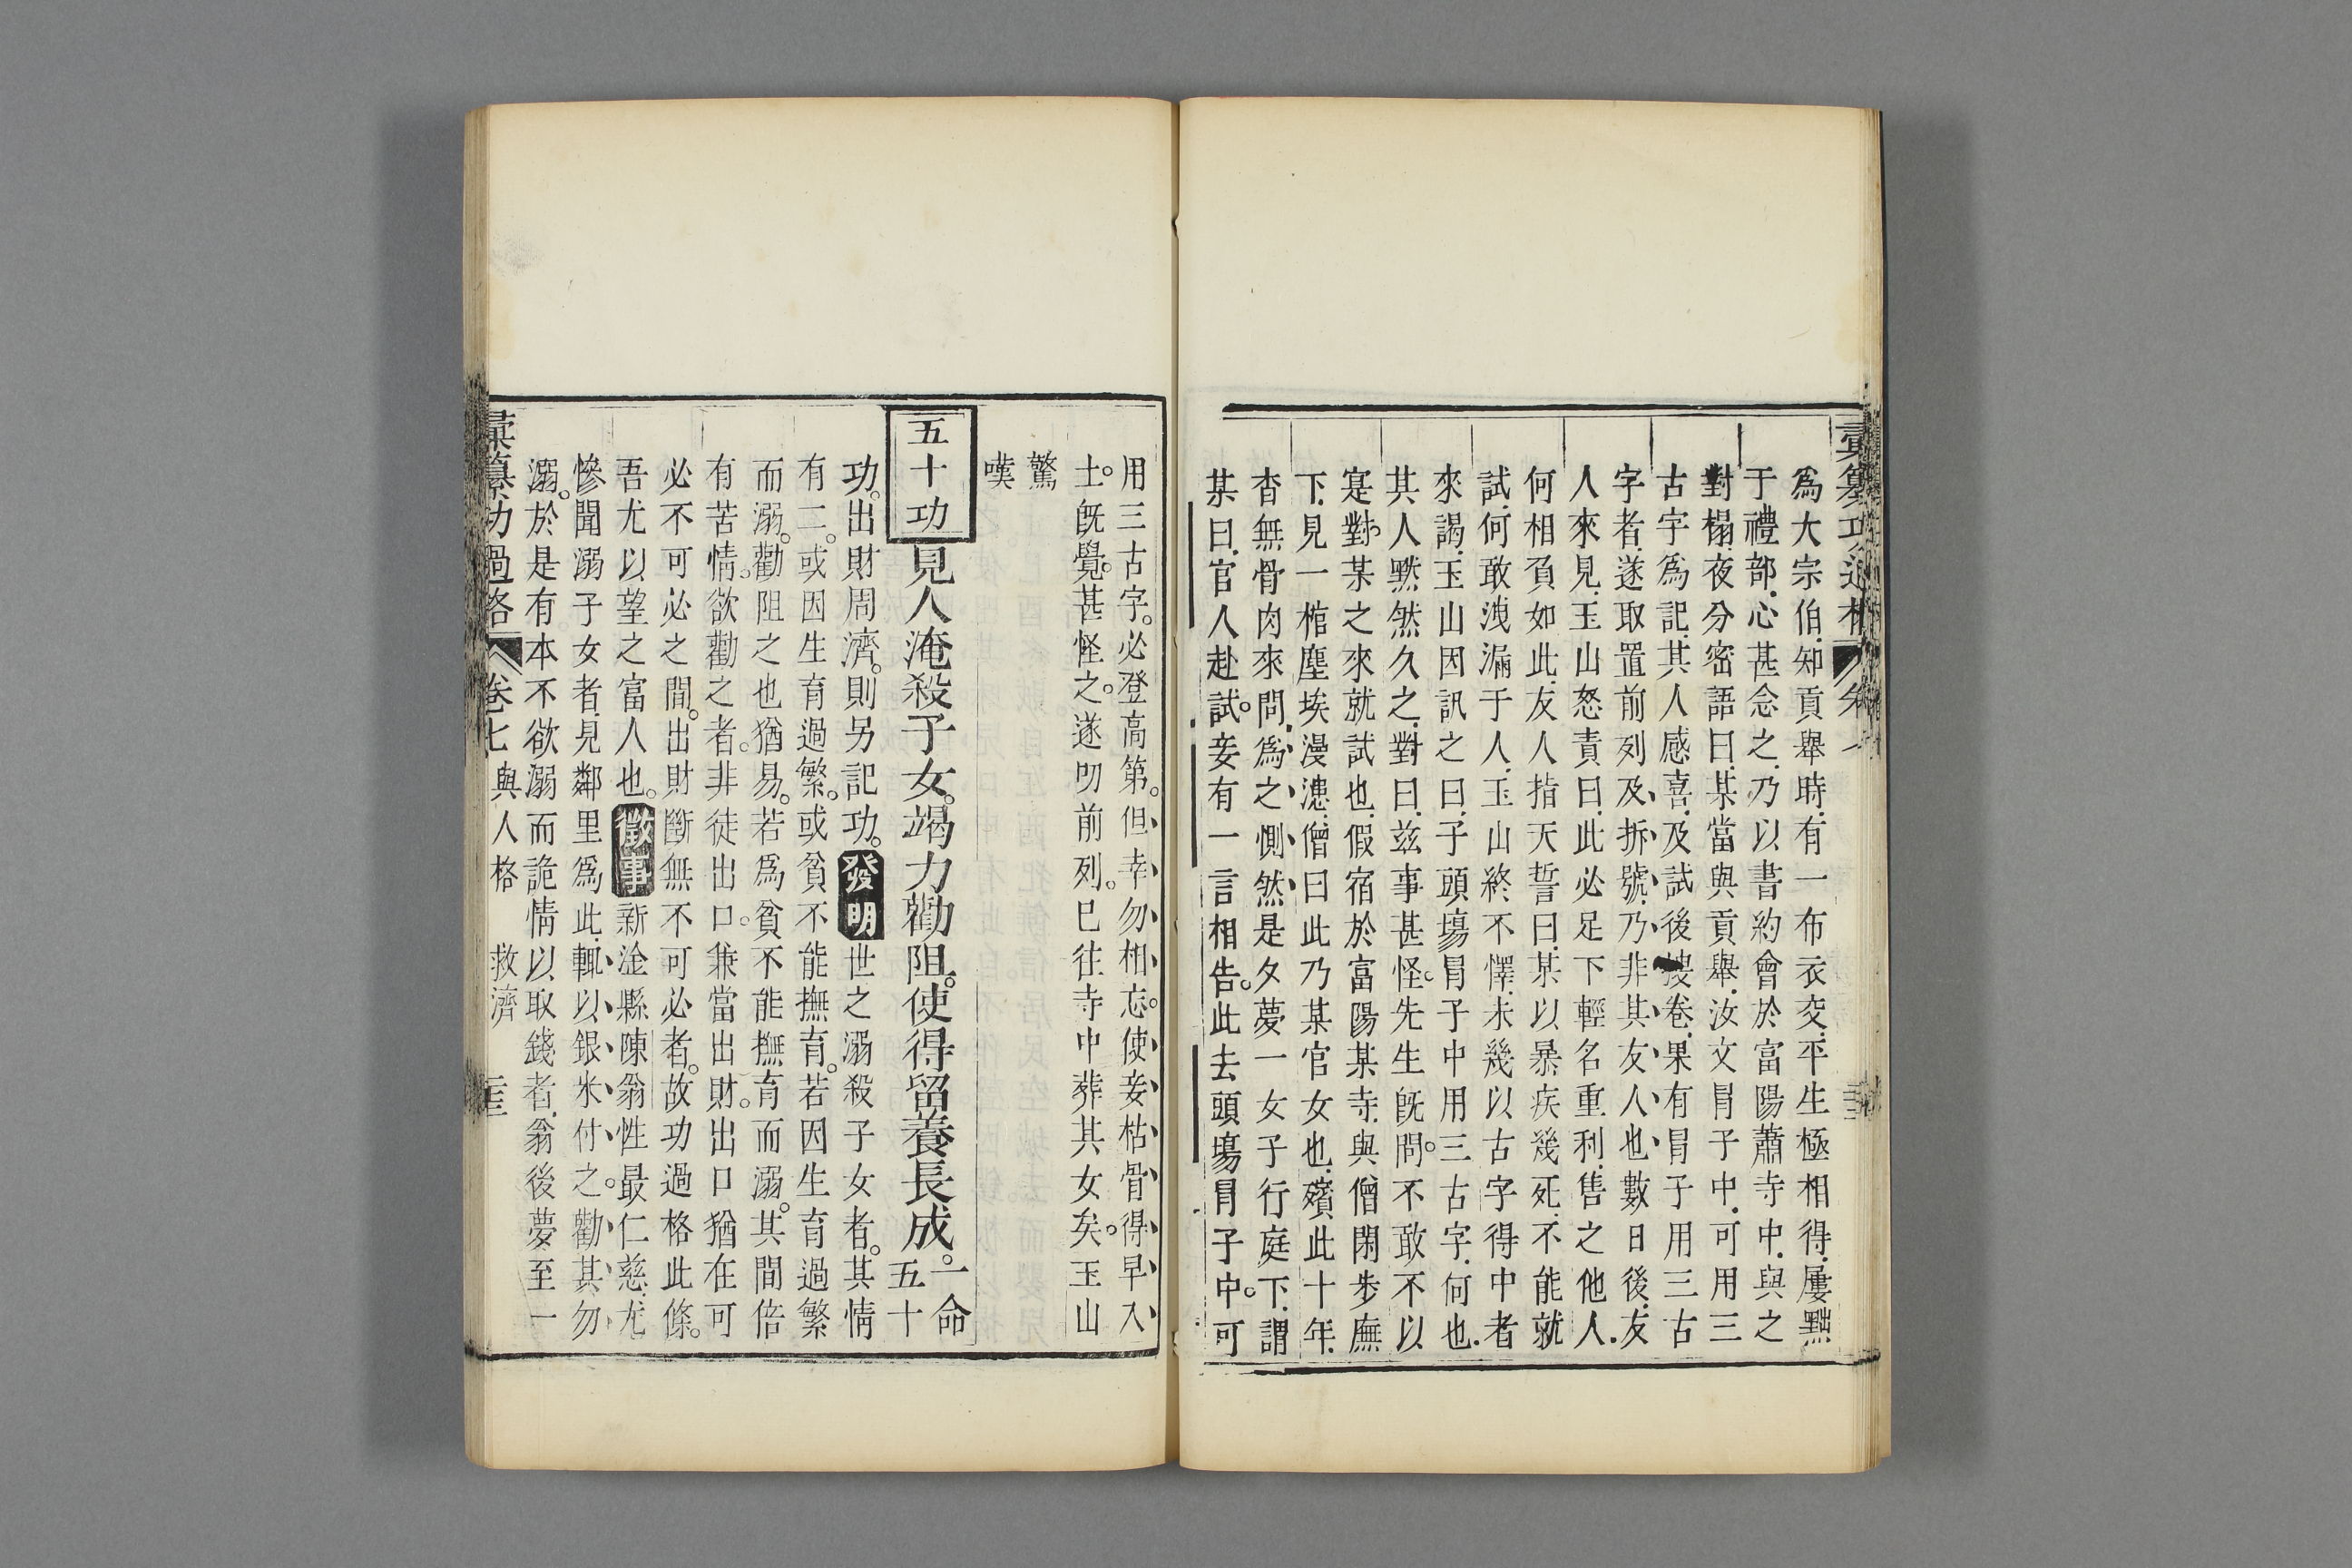 彙纂功過格
爲大宗伯知貢舉時有一布衣交平生極相得屢黜
于禮部心甚念之乃以書約會於富陽蕭寺中與之
對榻夜分密語曰某當與貢舉汝文冐子中可用三
古字爲記其人感喜及試後搜卷果有冐子用三古
字者遂取置前列及拆號乃非其友人也數日後友
人來見玉山怒責曰此必足下輕名重利售之他人
何相負如此友人指天誓曰某以暴疾幾死不能就
試何敢洩漏于人玉山終不懌未幾以古字得中者
來謁玉山因訊之曰子頭塲冐子中用三古字何也
其人黙然久之對曰兹事甚怪先生旣問不敢不以
寔對某之來就試也假宿於富陽某寺與僧閑步廡
下見一棺塵埃漫漶僧曰此乃某官女也殯此十年
杳無骨肉來問爲之惻然是夕夢一女子行庭下謂
某曰官人赴試妾有一言相告此去頭塲冐子中可
用三古字必登高第但幸勿相忘使妾枯骨得早入
土旣覺甚怪之遂叨前列已往寺中葬其女矣玉山
驚
嘆
五十功 見人淹殺子女竭力勸阻使得留養長成一命五十
功出財周濟則另記功 發明 世之溺殺子女者其情
有二或因生育過繁或貧不能撫育若因生育過繁
而溺勸阻之也猶易若爲貧不能撫育而溺其間倍
有苦情欲勸之者非徒出口兼當出財出口猶在可
必不可必之間出財斷無不可必者故功過格此條
吾尤以望之富人也 徵事 新淦縣陳翁性最仁慈尤
慘聞溺子女者見鄰里爲此輒以銀米付之勸其勿
溺於是有本不欲溺而詭情以取錢者翁後夢至一
彙纂功過格 卷七 與人格 救濟